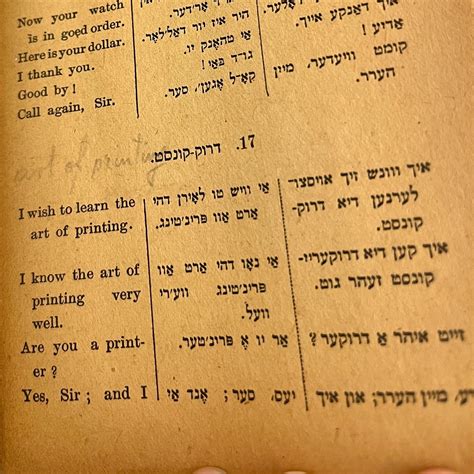 Now your watch
is in good order.
Here is your dollar.
I thank you.
Good by!
Call again, Sir.
אָרדער.
היר איז יור דאָללאַר.
אַי טהאַנק יו.
גוד באַי!
קאָ-ל אָגען', סער.
איך דאַנקע אייך.
אַדיע!
קומט וויעדער, מיין
הערר.
art of printing
17. דרוק-קונסט.
I wish to learn the
art of printing.
I know the art of
printing very
well.
Are you a print-
er?
Yes, Sir; and I
אַי וויש טו לאָירן דהי
אַרט אוו פּרינ'טינג.
אַי נאָו דהי אַרט אוו
פּרינ'טינג ווערי
וועל.
אַר יו אַ פּרינ'טער.
יעס, סער; אַנד אַי
איך ווינש זיך אויסצו-
לערנען דיא דרוק-
קונסט.
איך קען דיא דרוקעריי-
קונסט זעהר גוט.
זייט איהר אַ דרוקער?
מיין הערר; און איך